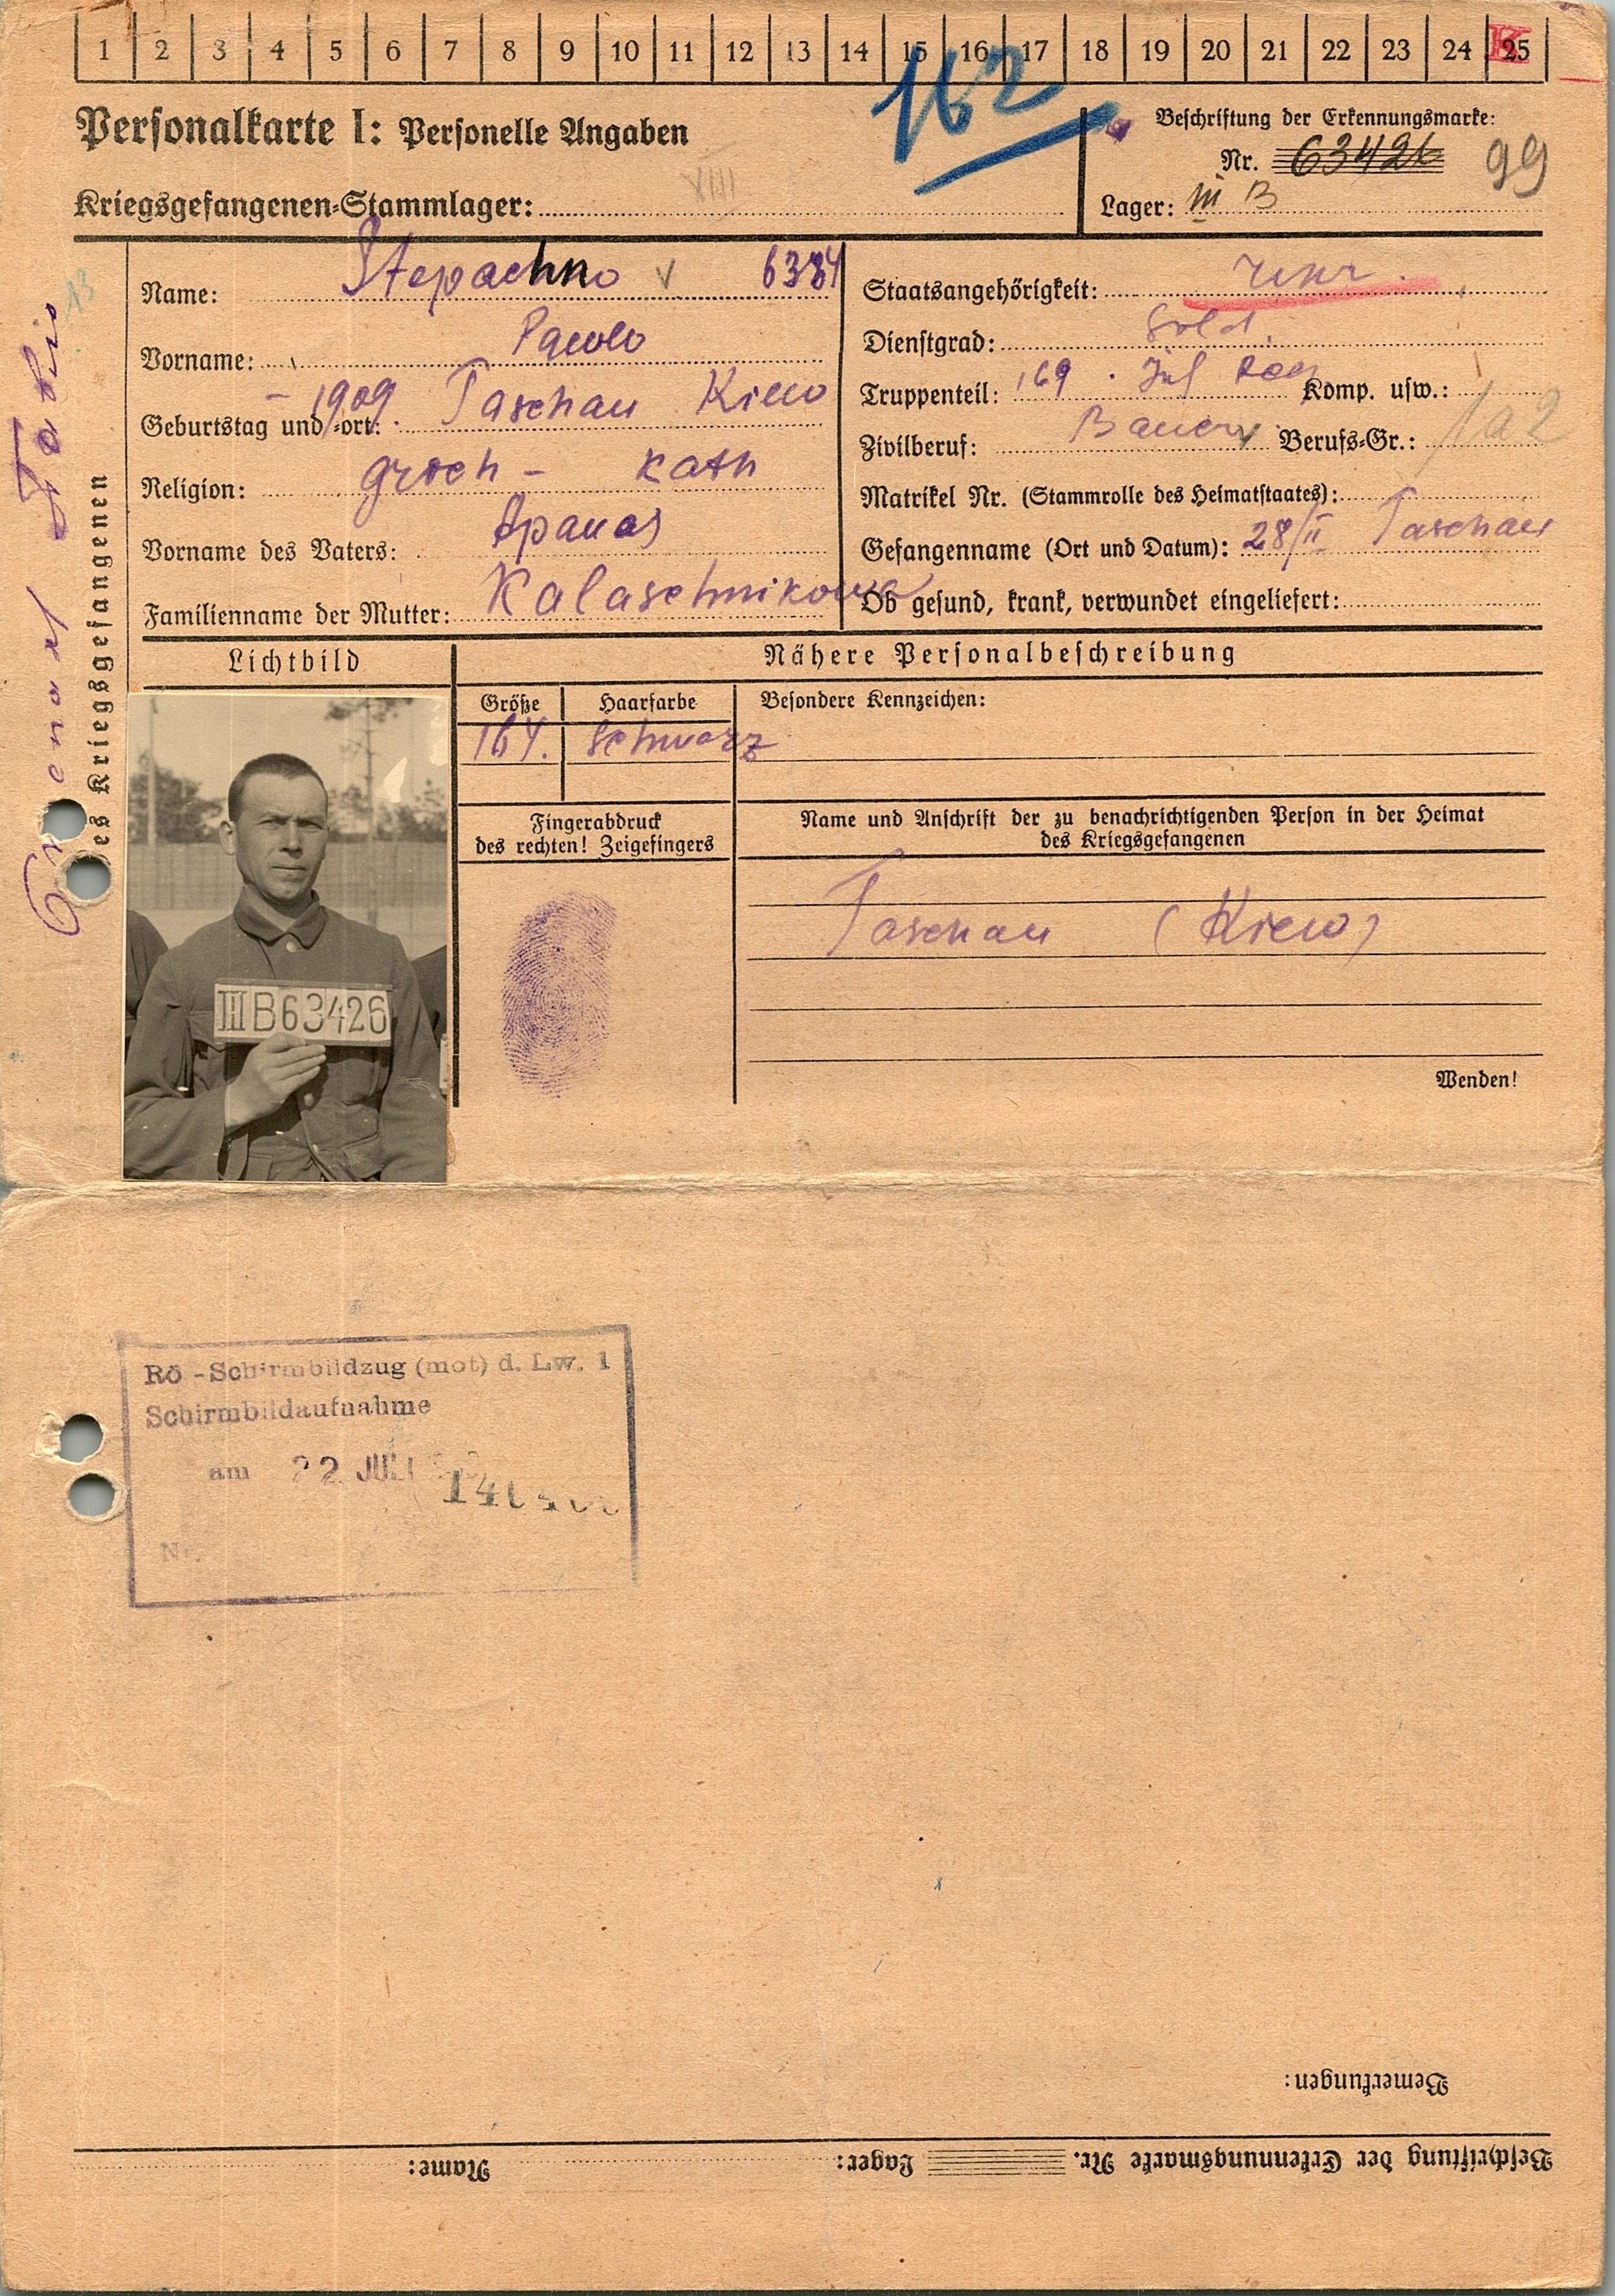 1 2 3 4 5 6 7 8 9 10 11 12 13 14 15 16 17 18 19 20 21 22 23 24 25
K
162
Personalkarte I: Personelle Angaben
Beschriftung der Erkennungsmarke:
Nr. 63426 99
Kriegsgefangenen-Stammlager:
Lager: III B
Name: Stepachno 6334
Vorname: Pawlo
Geburtstag und -ort: - 1909. Taschan Kiew
Religion: groch - kath
Vorname des Vaters: Apanas
Familienname der Mutter: Kalaschnikowa
Staatsangehörigkeit: Ukr.
Dienstgrad: Sold.
Truppenteil: 169. Inf Reg Komp. usw.:
Zivilberuf: Bauer Berufs-Gr.: 1a2
Matrikel Nr. (Stammrolle des Heimatstaates):
Gefangennahme (Ort und Datum): 28/II Taschan
Ob gesund, krank, verwundet eingeliefert:
des Kriegsgefangenen
Lichtbild
Nähere Personalbeschreibung
Größe Haarfarbe Besondere Kennzeichen:
164. schwarz
Fingerabdruck
des rechten! Zeigefingers
Name und Anschrift der zu benachrichtigenden Person in der Heimat
des Kriegsgefangenen
Taschan (Kiew)
Wenden!
III B 63426
Rö-Schirmbildzug (mot) d. Lw. 1
Schirmbildaufnahme
am 22 JULI
Nr.
Bemerkungen:
Beschriftung der Erkennungsmarke Nr. Lager: Name: